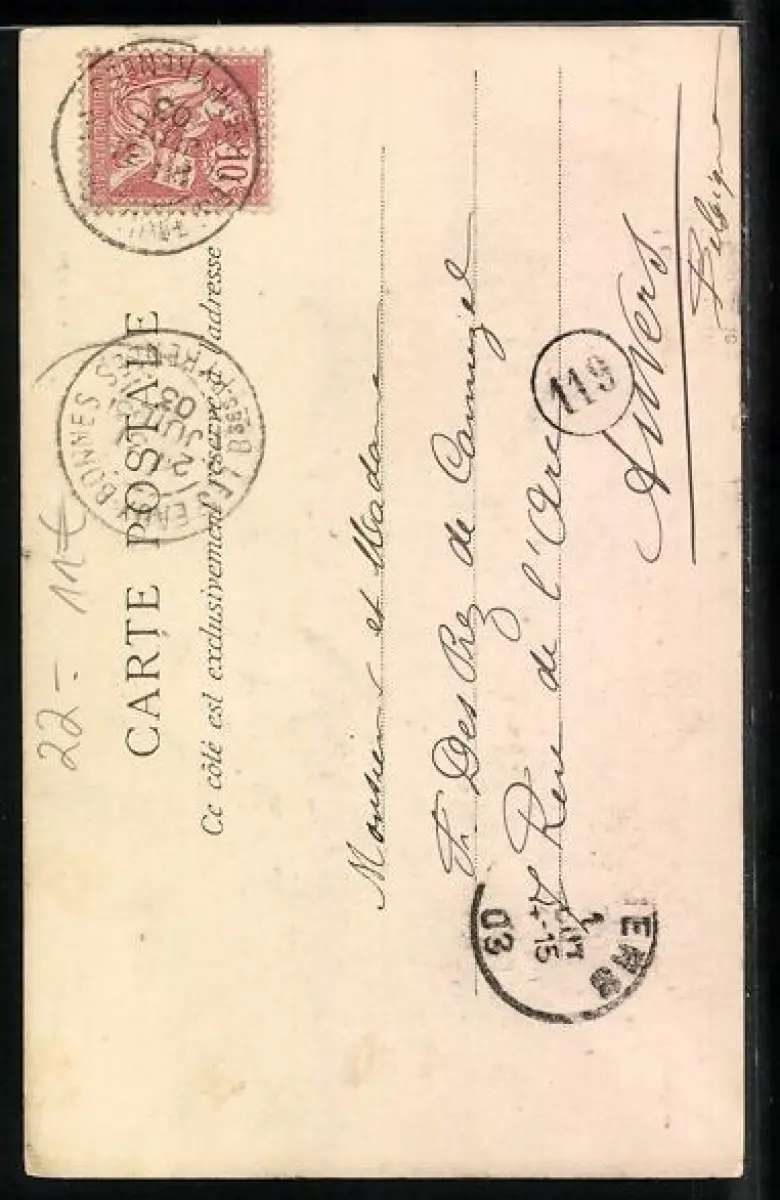 CARTE POSTALE
Ce côté est exclusivement réservé à l'adresse
Monsieur et Madame
Des Prez de
7 Rue de l'Arc
Anvers
Belgique
119
10
LES EAUX BONNES
BSES PYRENEES
JUIL
03
03
15
22.- 11€